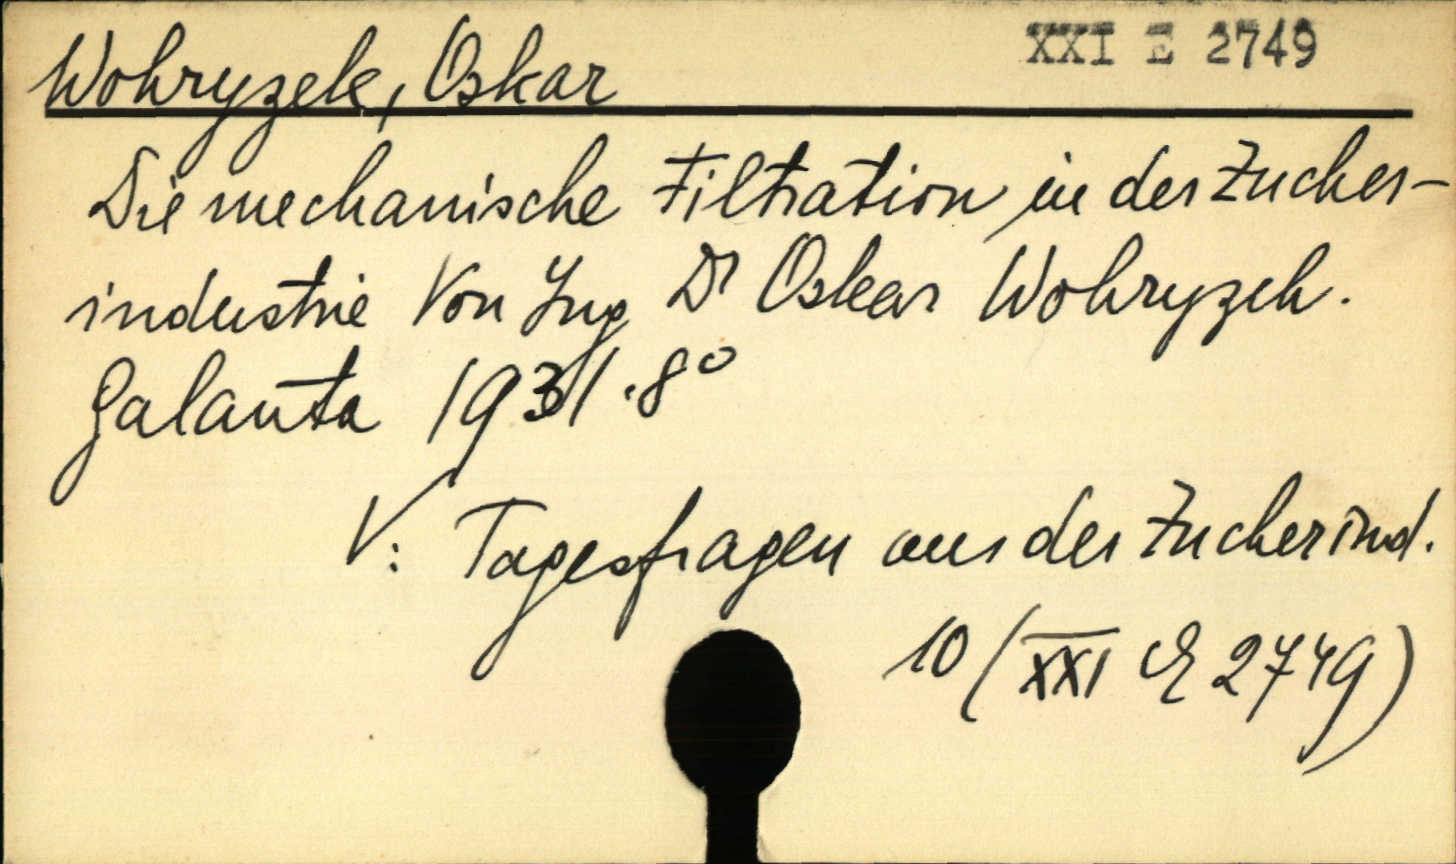 XXI E 2749
Wohryzek, Oskar
Die mechanische Filtration in der Zucker-
industrie Von Ing Dr Oskar Wohryzek.
Galanta 1931.8°
V: Tagesfragen aus der Zuckerind.
10 (XXI E 2749)